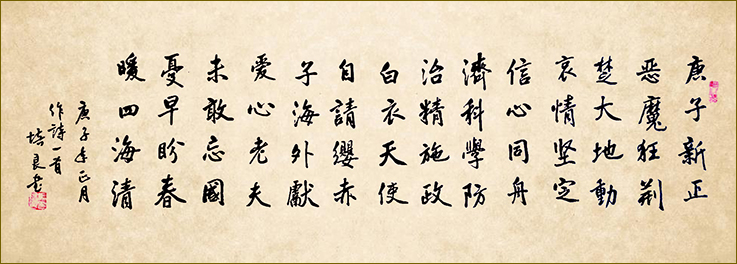 庚子新正
恶魔狂荆
楚大地動
哀情坚定
信心同舟
濟科學防
治精施政
白衣天使
自請纓赤
子海外獻
愛心老夫
未敢忘國
憂早盼春
暖四海清
庚子年正月
作詩一首
培良書